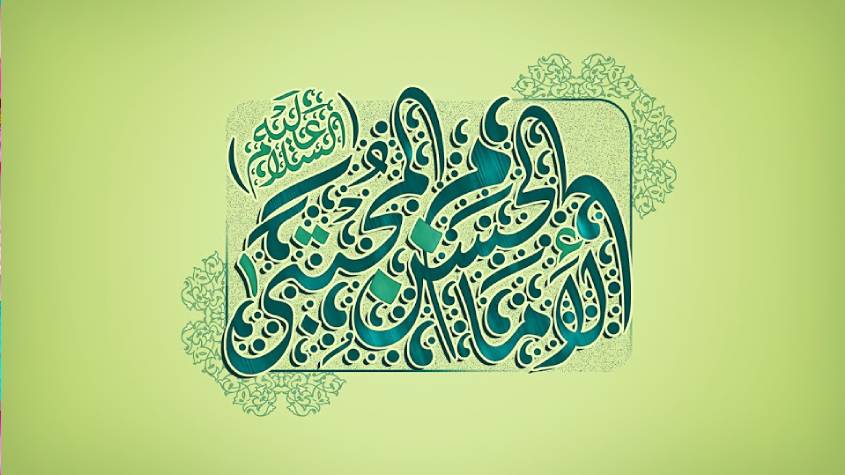 الإمام الحسن المجتبى
(عليه السلام)